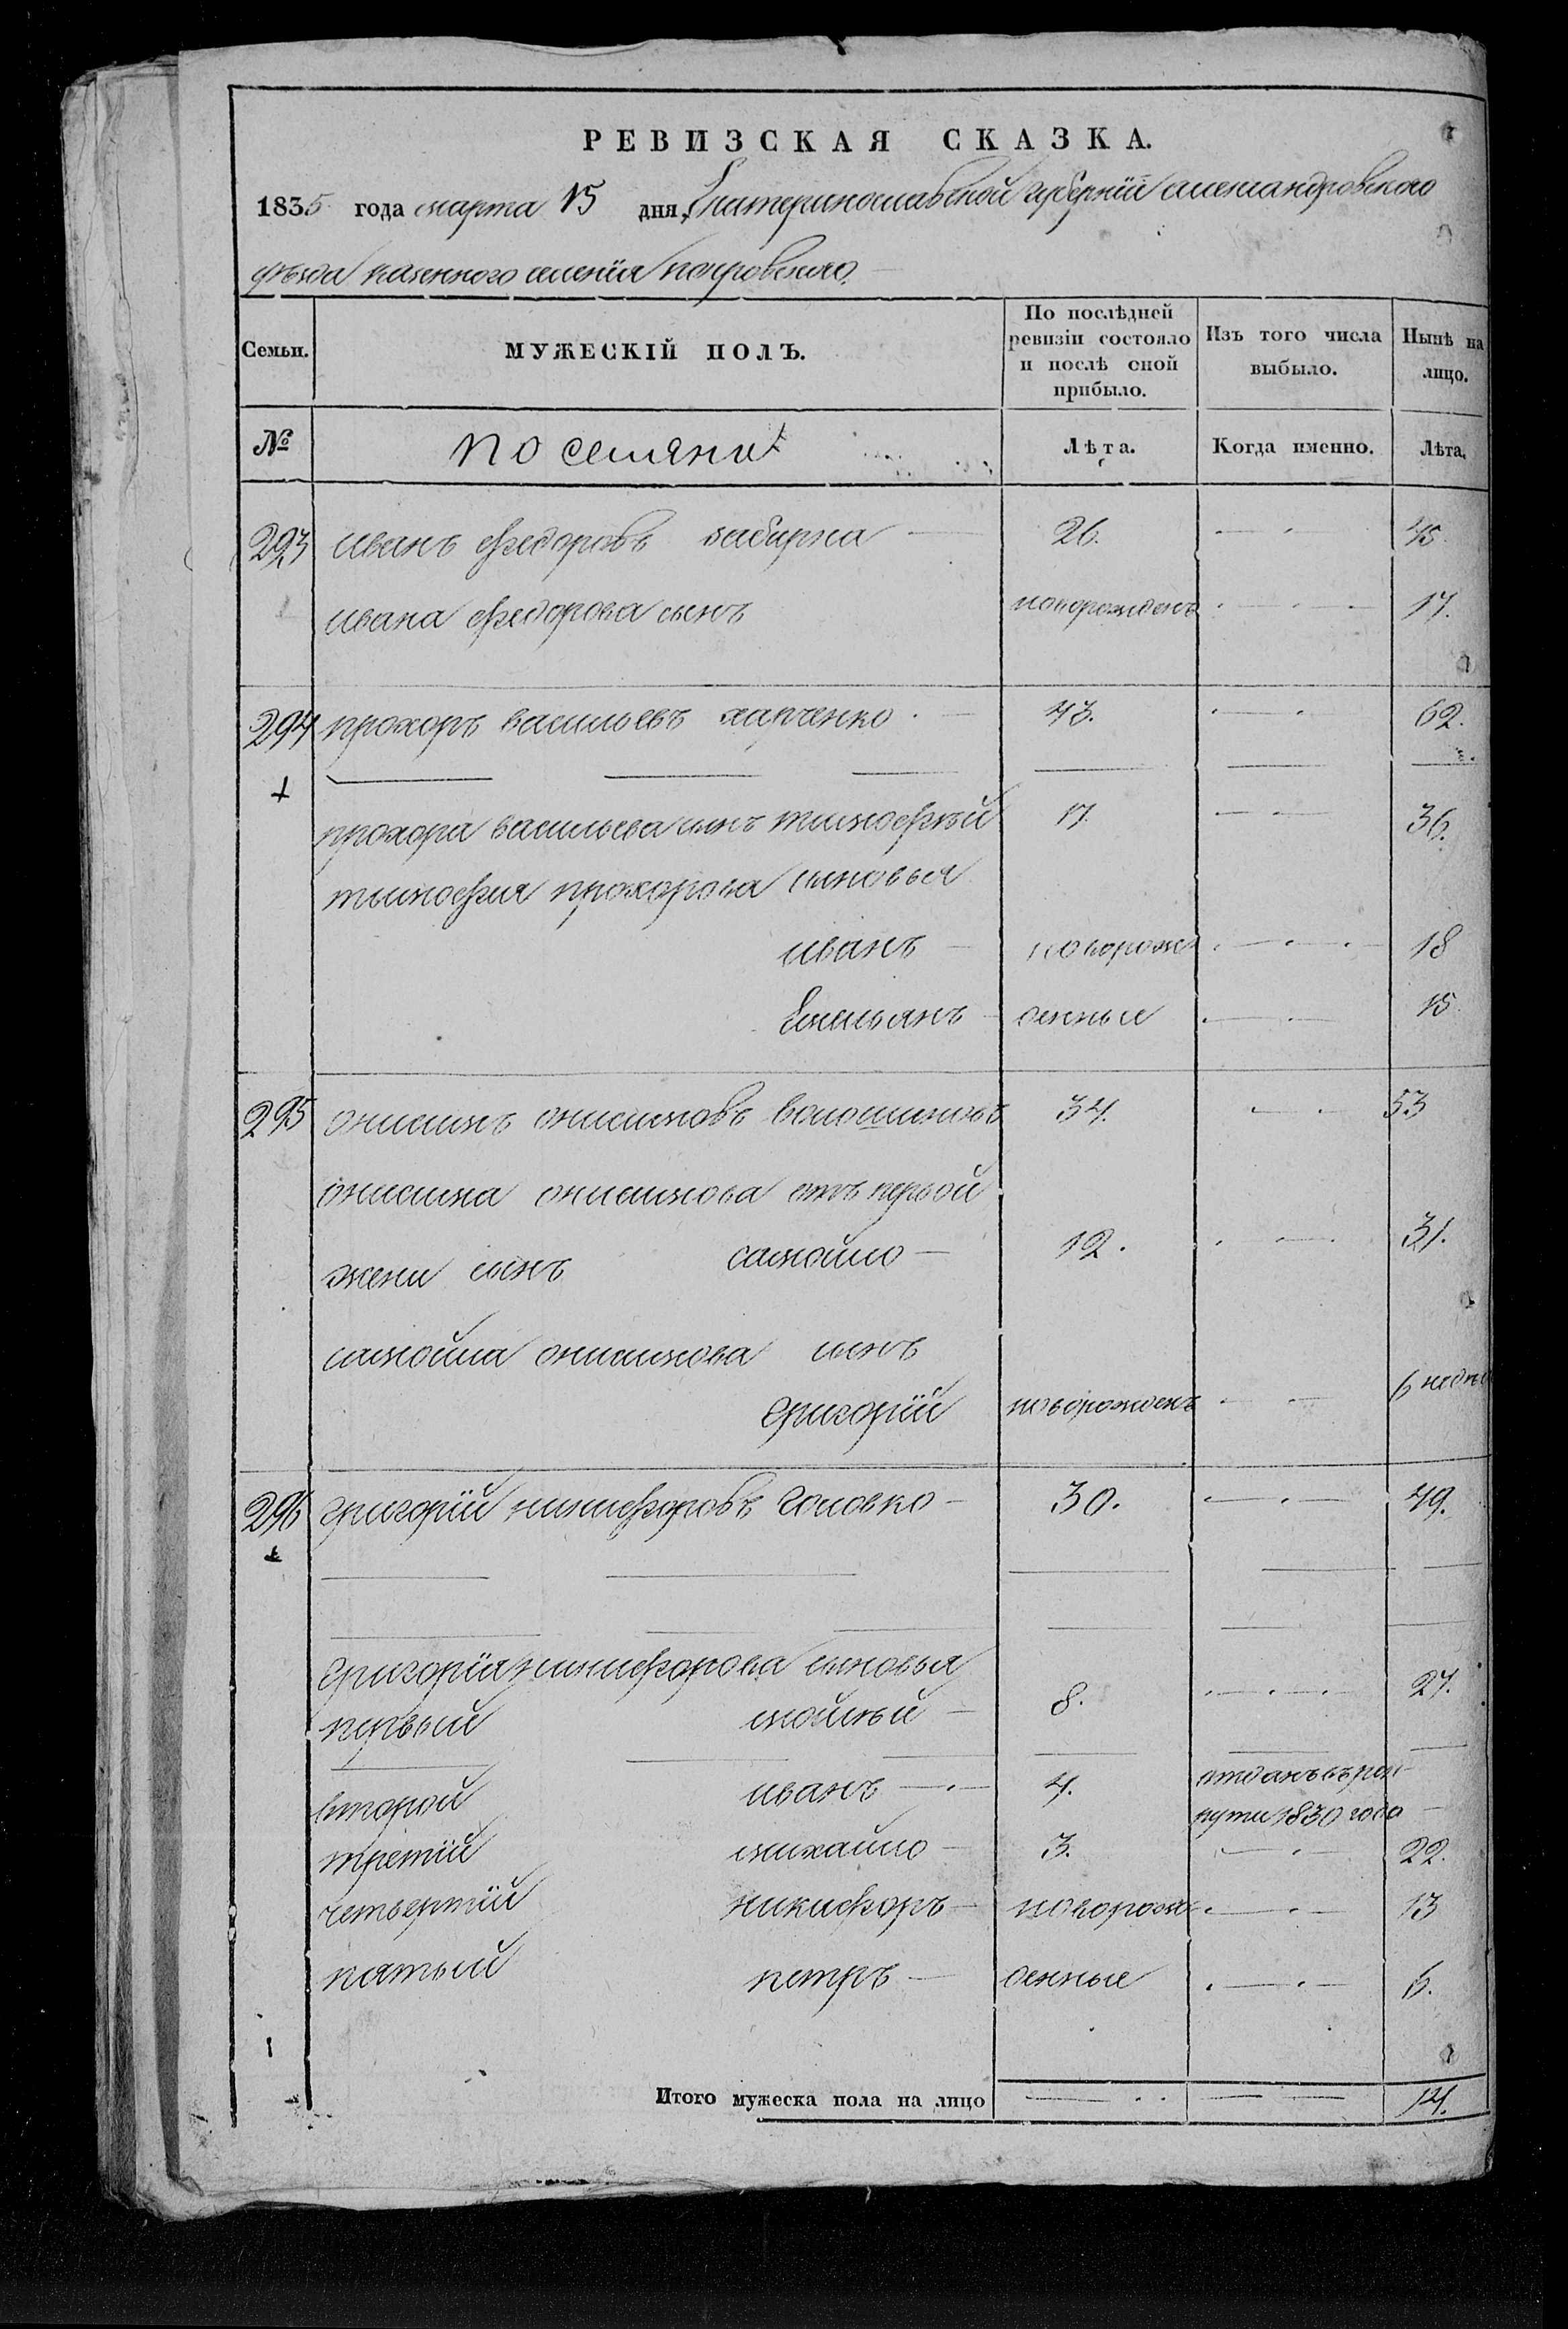 РЕВИЗСКАЯ СКАЗКА.
1835 года марта 15 дня, Екатеринославской губернїи александровского
уѣзда казенного селенїя покровского
Семьи. МУЖЕСКІЙ ПОЛЪ. По послѣдней ревизіи состояло и послѣ оной прибыло. Изъ того числа выбыло. Нынѣ на лицо.
№ поселяни Лѣта. Когда именно. Лѣта.
293 иванъ федоровъ 26. 45.
ивана федорова сынъ новорожденъ 17.
294 прохоръ васильевъ харченко 43. 62.
прохора васильева сынъ тимофѣй 17. 36.
тимофея прохорова сыновья
иванъ новорож 18
Емельянъ денные 15
295 онисимъ онисимовъ волошинъ 34. 53
онисима онисимова отъ первой
жени сынъ самойло 12. 31.
самойла онисимова сынъ
Григорїй новорожденъ 6 недѣ
296 григорїй никифоровъ головко 30. 49.
Григорїя никифорова сыновья
первый мойсѣй 8. 27.
второй иванъ 4. отданъ въ рек
рути 1830 года
третїй михайло 3. 22.
четвертїй никифоръ новорож 13
пятый петръ денные 6.
Итого мужеска пола на лицо 14.